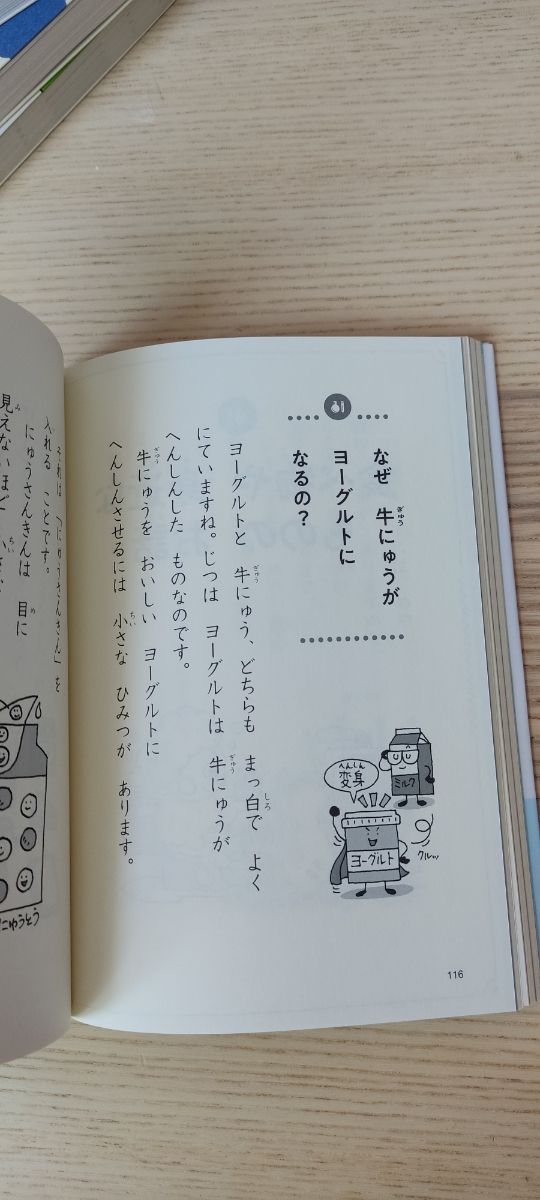 なぜ 牛にゅうが
ヨーグルトに
なるの？
ヨーグルトと 牛にゅう、どちらも まっ白で よく
にていますね。じつは ヨーグルトは 牛にゅうが
へんしんした ものなのです。
牛にゅうを おいしい ヨーグルトに
へんしんさせるには 小さな ひみつが あります。
変身
ミルク
ヨーグルト
クルッ
116
それは 「にゅうさんきん」を
入れる ことです。
にゅうさんきんは 目に
見えないほど
にゅうとう